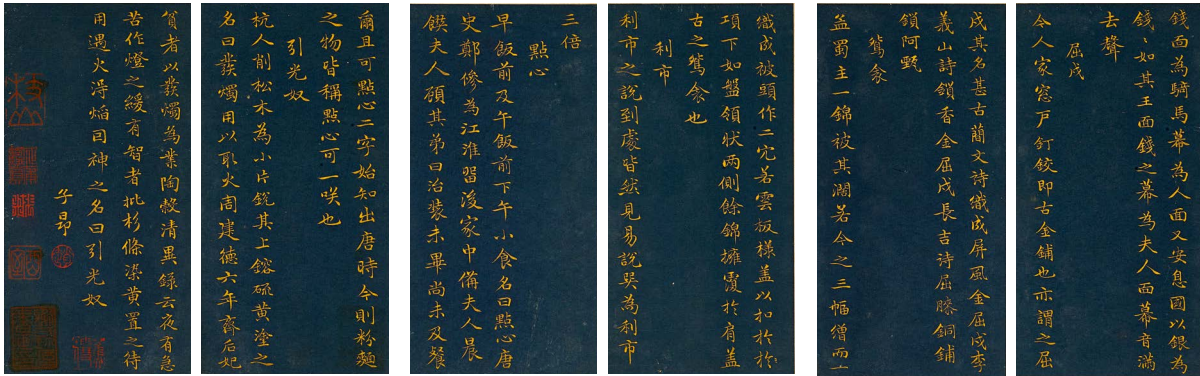 錢面為騎馬幕為人面又安息國以銀為
錢〻如其王面錢之幕為夫人面幕音滿
去聲
屈戌
今人家窓戶釘鉸即古金鋪也亦謂之屈
戌其名甚古蕳文詩織成屏風金屈戌李
義山詩鎖香金屈戌長吉詩屈膝銅鋪
鎖阿甄
鴛衾
孟蜀主一錦被其闊若今之三幅繒而一
織成被頭作二穴若雲板樣盖以扣於於
項下如盤領狀兩側餘錦擁覆於肩盖
古之鴛衾也
利市
利市之說到處皆然見易說巽為利市
三倍
點心
早飯前及午飯前下午小食名曰點心唐
史鄭傪為江淮畱後家中備夫人晨
饌夫人顧其弟曰治裝未畢尚未及餐
爾且可點心二字始知出唐時今則粉麵
之物皆稱點心可一咲也
引光奴
杭人削松木為小片銳其上鎔硫黃塗之
名曰發燭用以取火周建德六年齊后妃
貧者以發燭為業陶穀清異錄云夜有急
苦作燈之緩有智者批杉條染黃置之待
用遇火得焰囘神之名曰引光奴
子昂